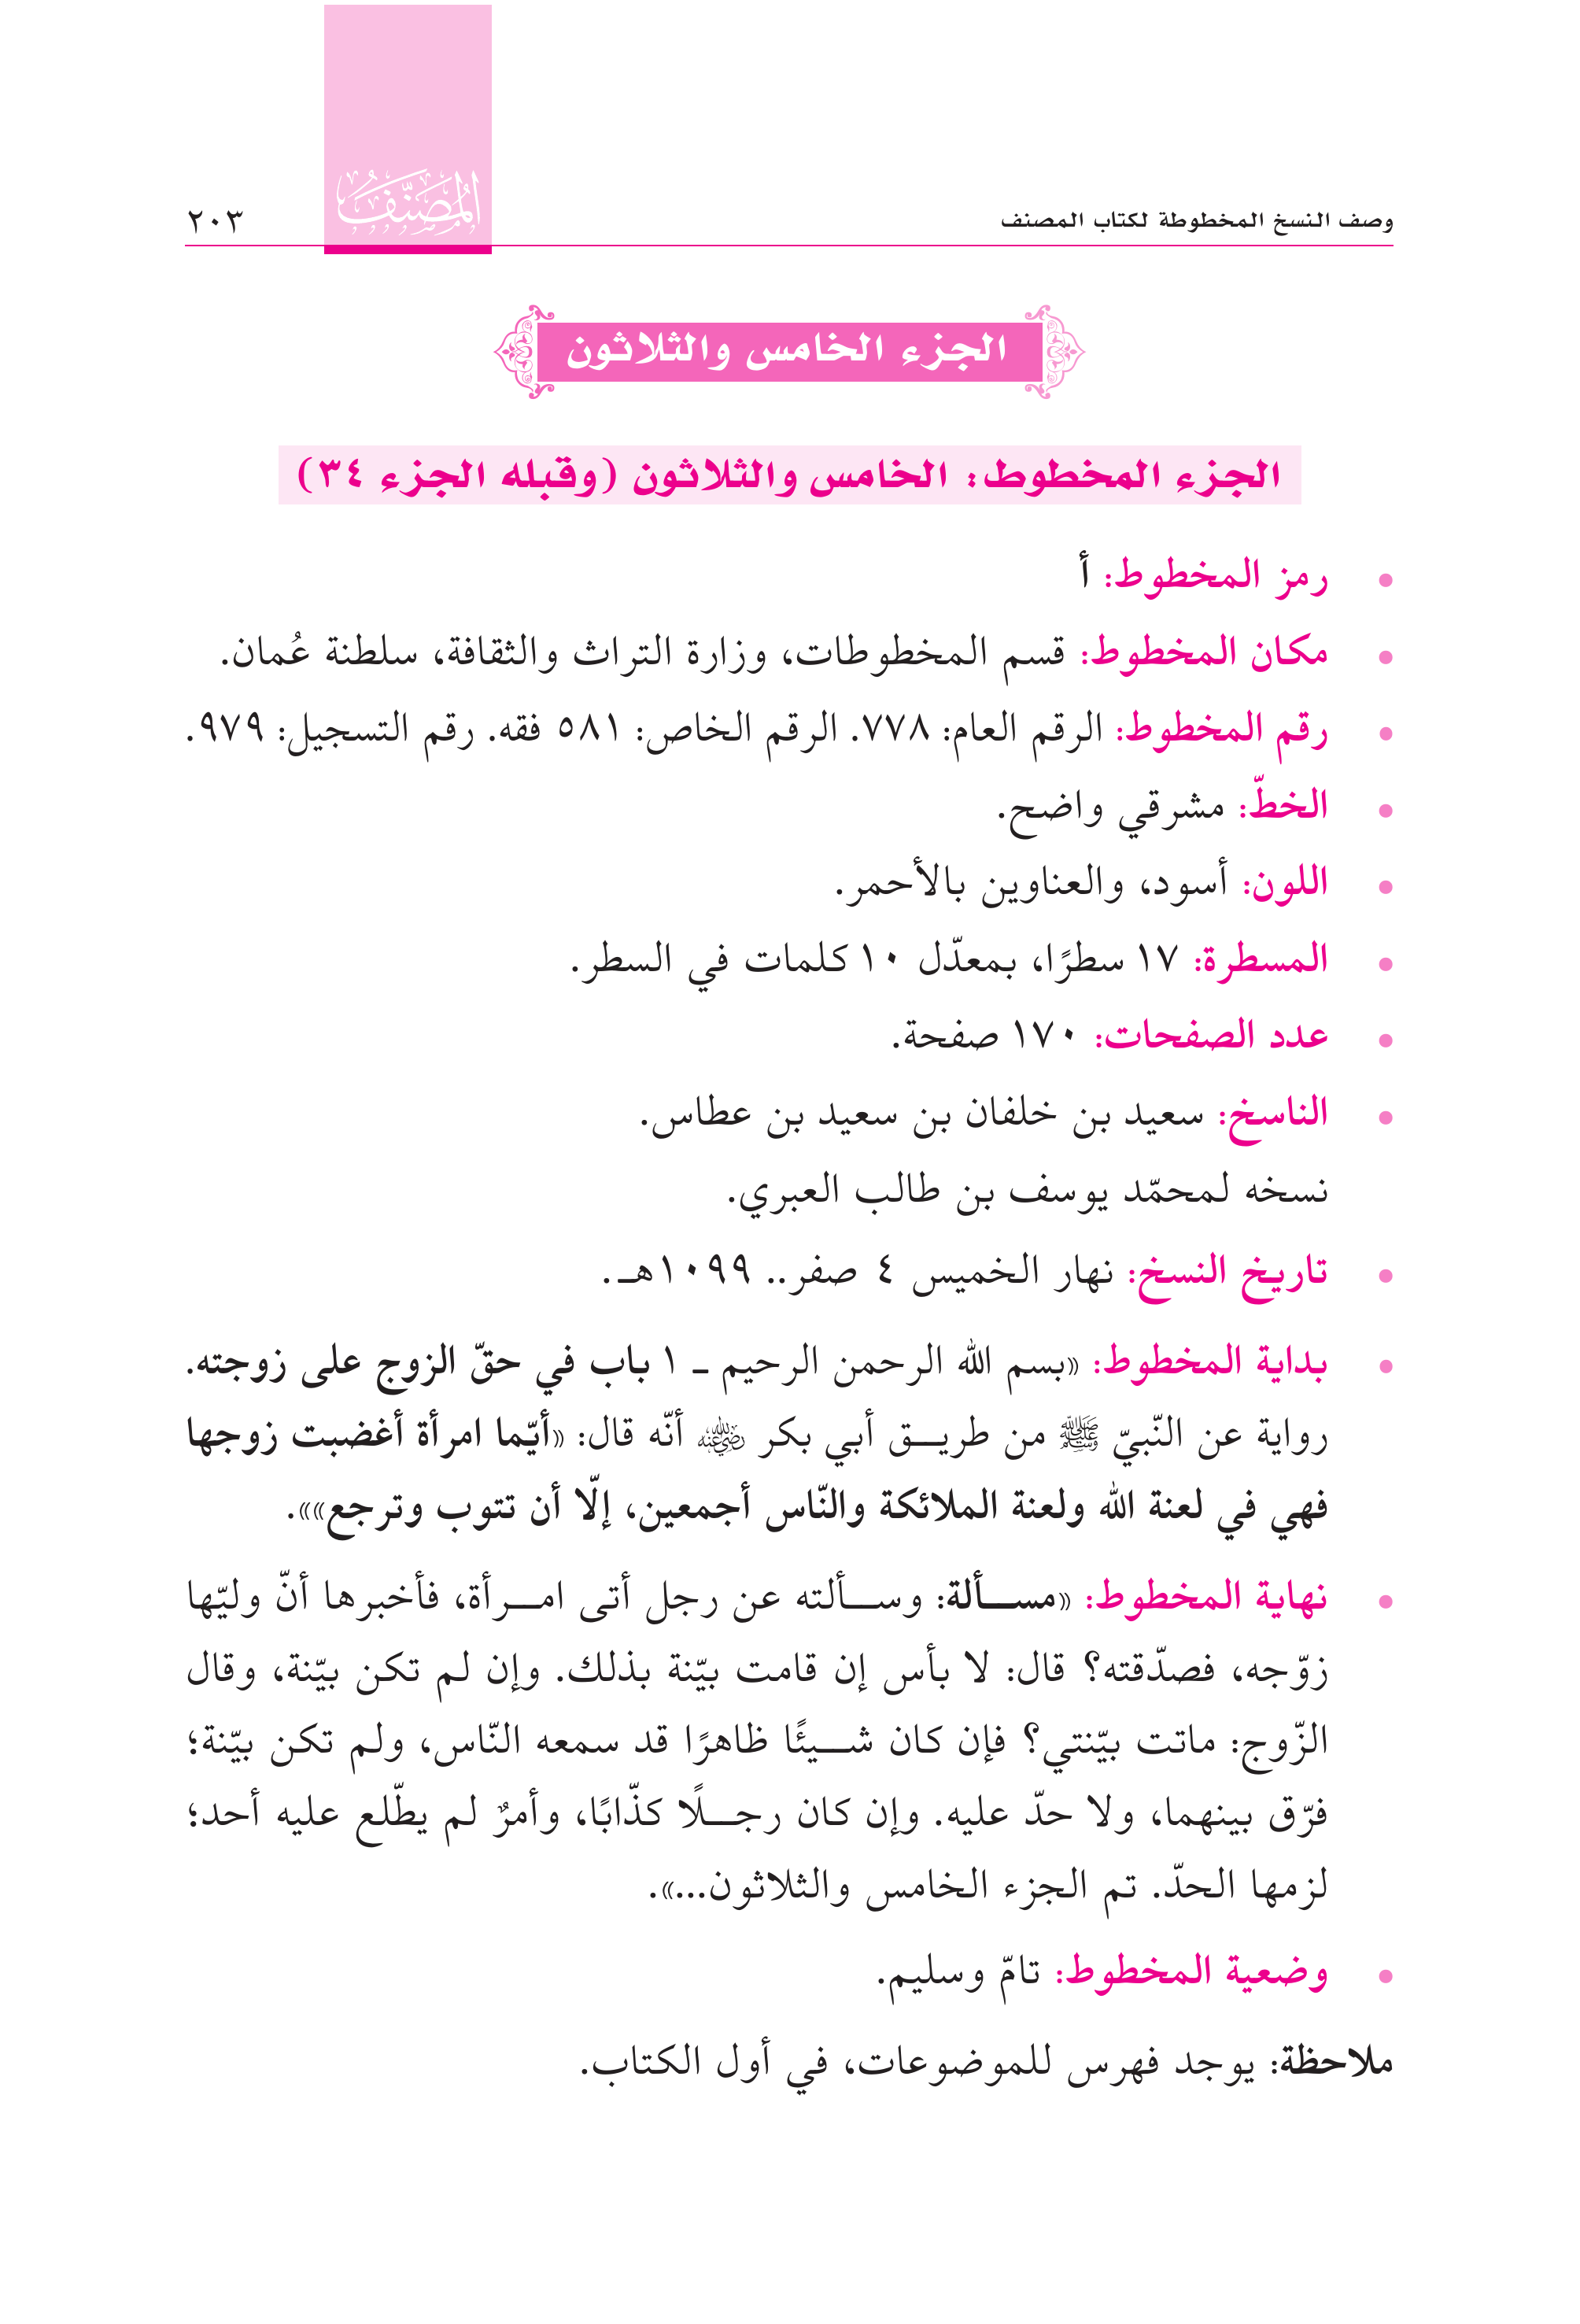 وصف النسخ المخطوطة لكتاب المصنف
المُصَنَّف
٢٠٣
الجزء الخامس والثلاثون
الجزء المخطوط: الخامس والثلاثون (وقبله الجزء ٣٤)
• رمز المخطوط: أ
• مكان المخطوط: قسم المخطوطات، وزارة التراث والثقافة، سلطنة عُمان.
• رقم المخطوط: الرقم العام: ٧٧٨. الرقم الخاص: ٥٨١ فقه. رقم التسجيل: ٩٧٩.
• الخطّ: مشرقي واضح.
• اللون: أسود، والعناوين بالأحمر.
• المسطرة: ١٧ سطرًا، بمعدّل ١٠ كلمات في السطر.
• عدد الصفحات: ١٧٠ صفحة.
• الناسخ: سعيد بن خلفان بن سعيد بن عطاس.
نسخه لمحمّد يوسف بن طالب العبري.
• تاريخ النسخ: نهار الخميس ٤ صفر.. ١٠٩٩هـ.
• بداية المخطوط: «بسم الله الرحمن الرحيم ـ ١ باب في حقّ الزوج على زوجته.
رواية عن النّبيّ ﷺ من طريـــق أبي بكر رضي الله عنه أنّه قال: «أيّما امرأة أغضبت زوجها
فهي في لعنة الله ولعنة الملائكة والنّاس أجمعين، إلّا أن تتوب وترجع»».
• نهاية المخطوط: «مســـألة: وســـألته عن رجل أتى امـــرأة، فأخبرها أنّ وليّها
زوّجه، فصدّقته؟ قال: لا بأس إن قامت بيّنة بذلك. وإن لم تكن بيّنة، وقال
الزّوج: ماتت بيّنتي؟ فإن كان شـــيئًا ظاهرًا قد سمعه النّاس، ولم تكن بيّنة؛
فرّق بينهما، ولا حدّ عليه. وإن كان رجـــلًا كذّابًا، وأمرٌ لم يطّلع عليه أحد؛
لزمها الحدّ. تم الجزء الخامس والثلاثون...».
• وضعية المخطوط: تامّ وسليم.
ملاحظة: يوجد فهرس للموضوعات، في أول الكتاب.